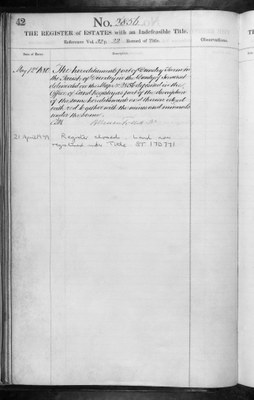 42
No. 2856
THE REGISTER of ESTATES with an Indefeasible Title.
Reference Vol. Record of Title.
Observations.
Date of Entry.
Description.
The hereditaments part of Dawley Farm in
the Parish of in the County of Somerset
delineated on the Map No 2856 deposited in the
Office of Land Registry as part of the description
of the same hereditaments and thereon edged
with red together with the mines and minerals
under the same
21 April 1979 Register closed. Land now
registered under Title ST 170771